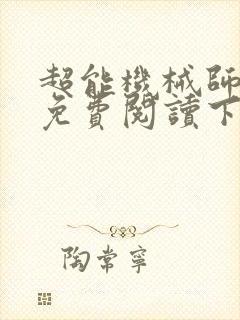 超能機械師
免費閱讀下
陶常寧